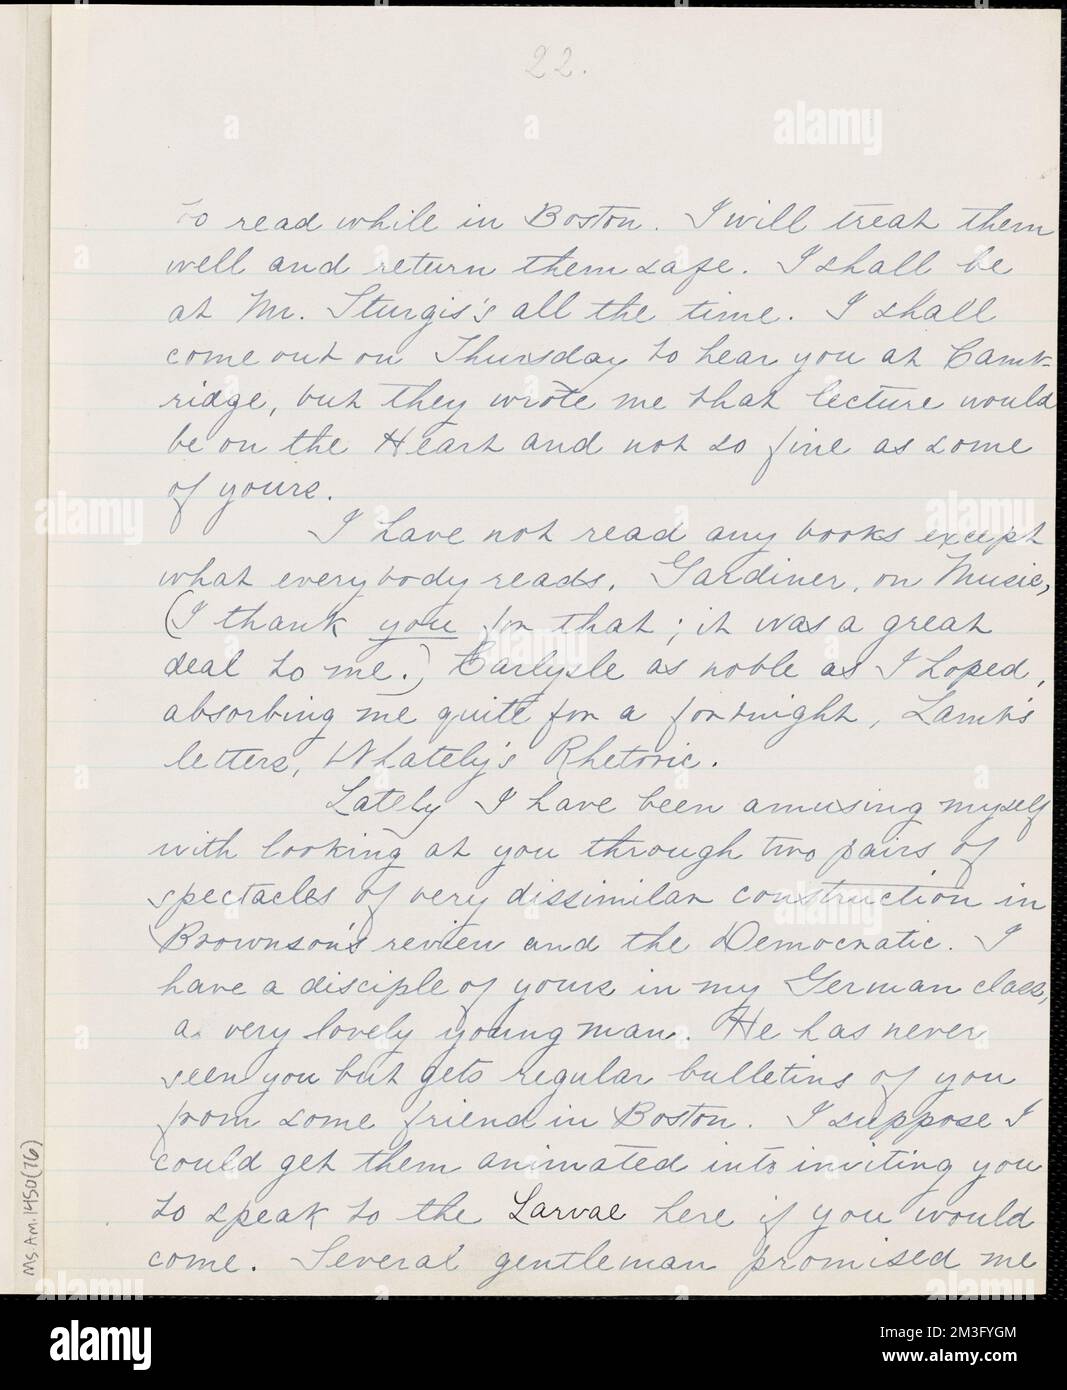 22.
to read while in Boston. I will treat them
well and return them safe. I shall be
at Mr. Sturgis's all the time. I shall
come out on Thursday to hear you at Camb-
ridge, but they wrote me that lecture would
be on the Heart and not so fine as some
of yours.
I have not read any books except
what everybody reads, Gardiner, on Music,
(I thank you for that; it was a great
deal to me.) Carlysle as noble as I hoped,
absorbing me quite for a fortnight, Lamb's
letters, Whately's Rhetoric.
Lately I have been amusing myself
with looking at you through two pairs of
spectacles of very dissimilar construction in
Brownson's review and the Democratic. I
have a disciple of yours in my German class,
a very lovely young man. He has never
seen you but gets regular bulletins of you
from some friend in Boston. I suppose I
could get them animated into inviting you
to speak to the Larvae here if you would
come. Several gentleman promised me
Ms. Am. 1450 (76)
a
a
alamy
a
a
alamy
a
alamy
a
a
alamy
a
a
alamy
a
a
alamy
a
alamy
alamy
Image ID: 2M3FYGM
www.alamy.com